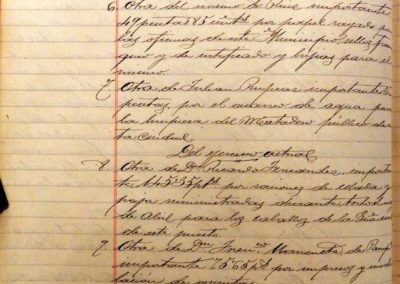 6. Otra del mismo Sr. Ruiz importante
49 pesetas 85 cents por papel rayado pa
las oficinas de este Municipio, sellos
y de certificado y para el
mismo.
7. Otra de Julian importante
pesetas, por el acarreo de agua para
la limpieza del Matadero público de es
ta Ciudad.
Del ejercicio actual
8. Otra de Dn Ricardo Fernandez, import
te por raciones de cebada y
paja suministradas durante todo el mes
de Abril para los caballos de la Guar
de este puesto.
9. Otra de Dn Franco de
importante 75'65 pts por impresos y
lacion de